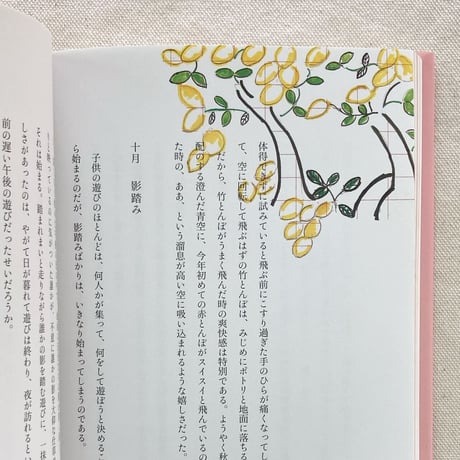 体得せずに試みていると飛ぶ前にこすり過ぎた手のひらが痛くなってし
て、空に回転して飛ぶはずの竹とんぼは、みじめにポトリと地面に落ちる
だから、竹とんぼがうまく飛んだ時の爽快感は特別である。ようやく秋
配のする澄んだ青空に、今年初めての赤とんぼがスイスイと飛んでいるの
た時の、ああ、という溜息が高い空に吸い込まれるような嬉しさだった。
十月 影踏み
子供の遊びのほとんどは、何人かが集って、何をして遊ぼうと決めるこ
ら始まるのだが、影踏みばかりは、いきなり始まってしまうのである。
それは始まる。踏まれまいと走りながら誰かの影を踏む遊びに、一抹
しさがあったのは、やがて日が暮れて遊びは終わり、夜が訪れるとい
前の遅い午後の遊びだったせいだろうか。